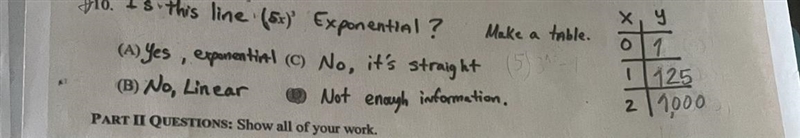 10. Is this line (5x)³ Exponential? Make a table.
(A) Yes, exponential (C) No, it's straight
(B) No, Linear Not enough information.
PART II QUESTIONS: Show all of your work.
x y
0 1
1 125
2 1,000